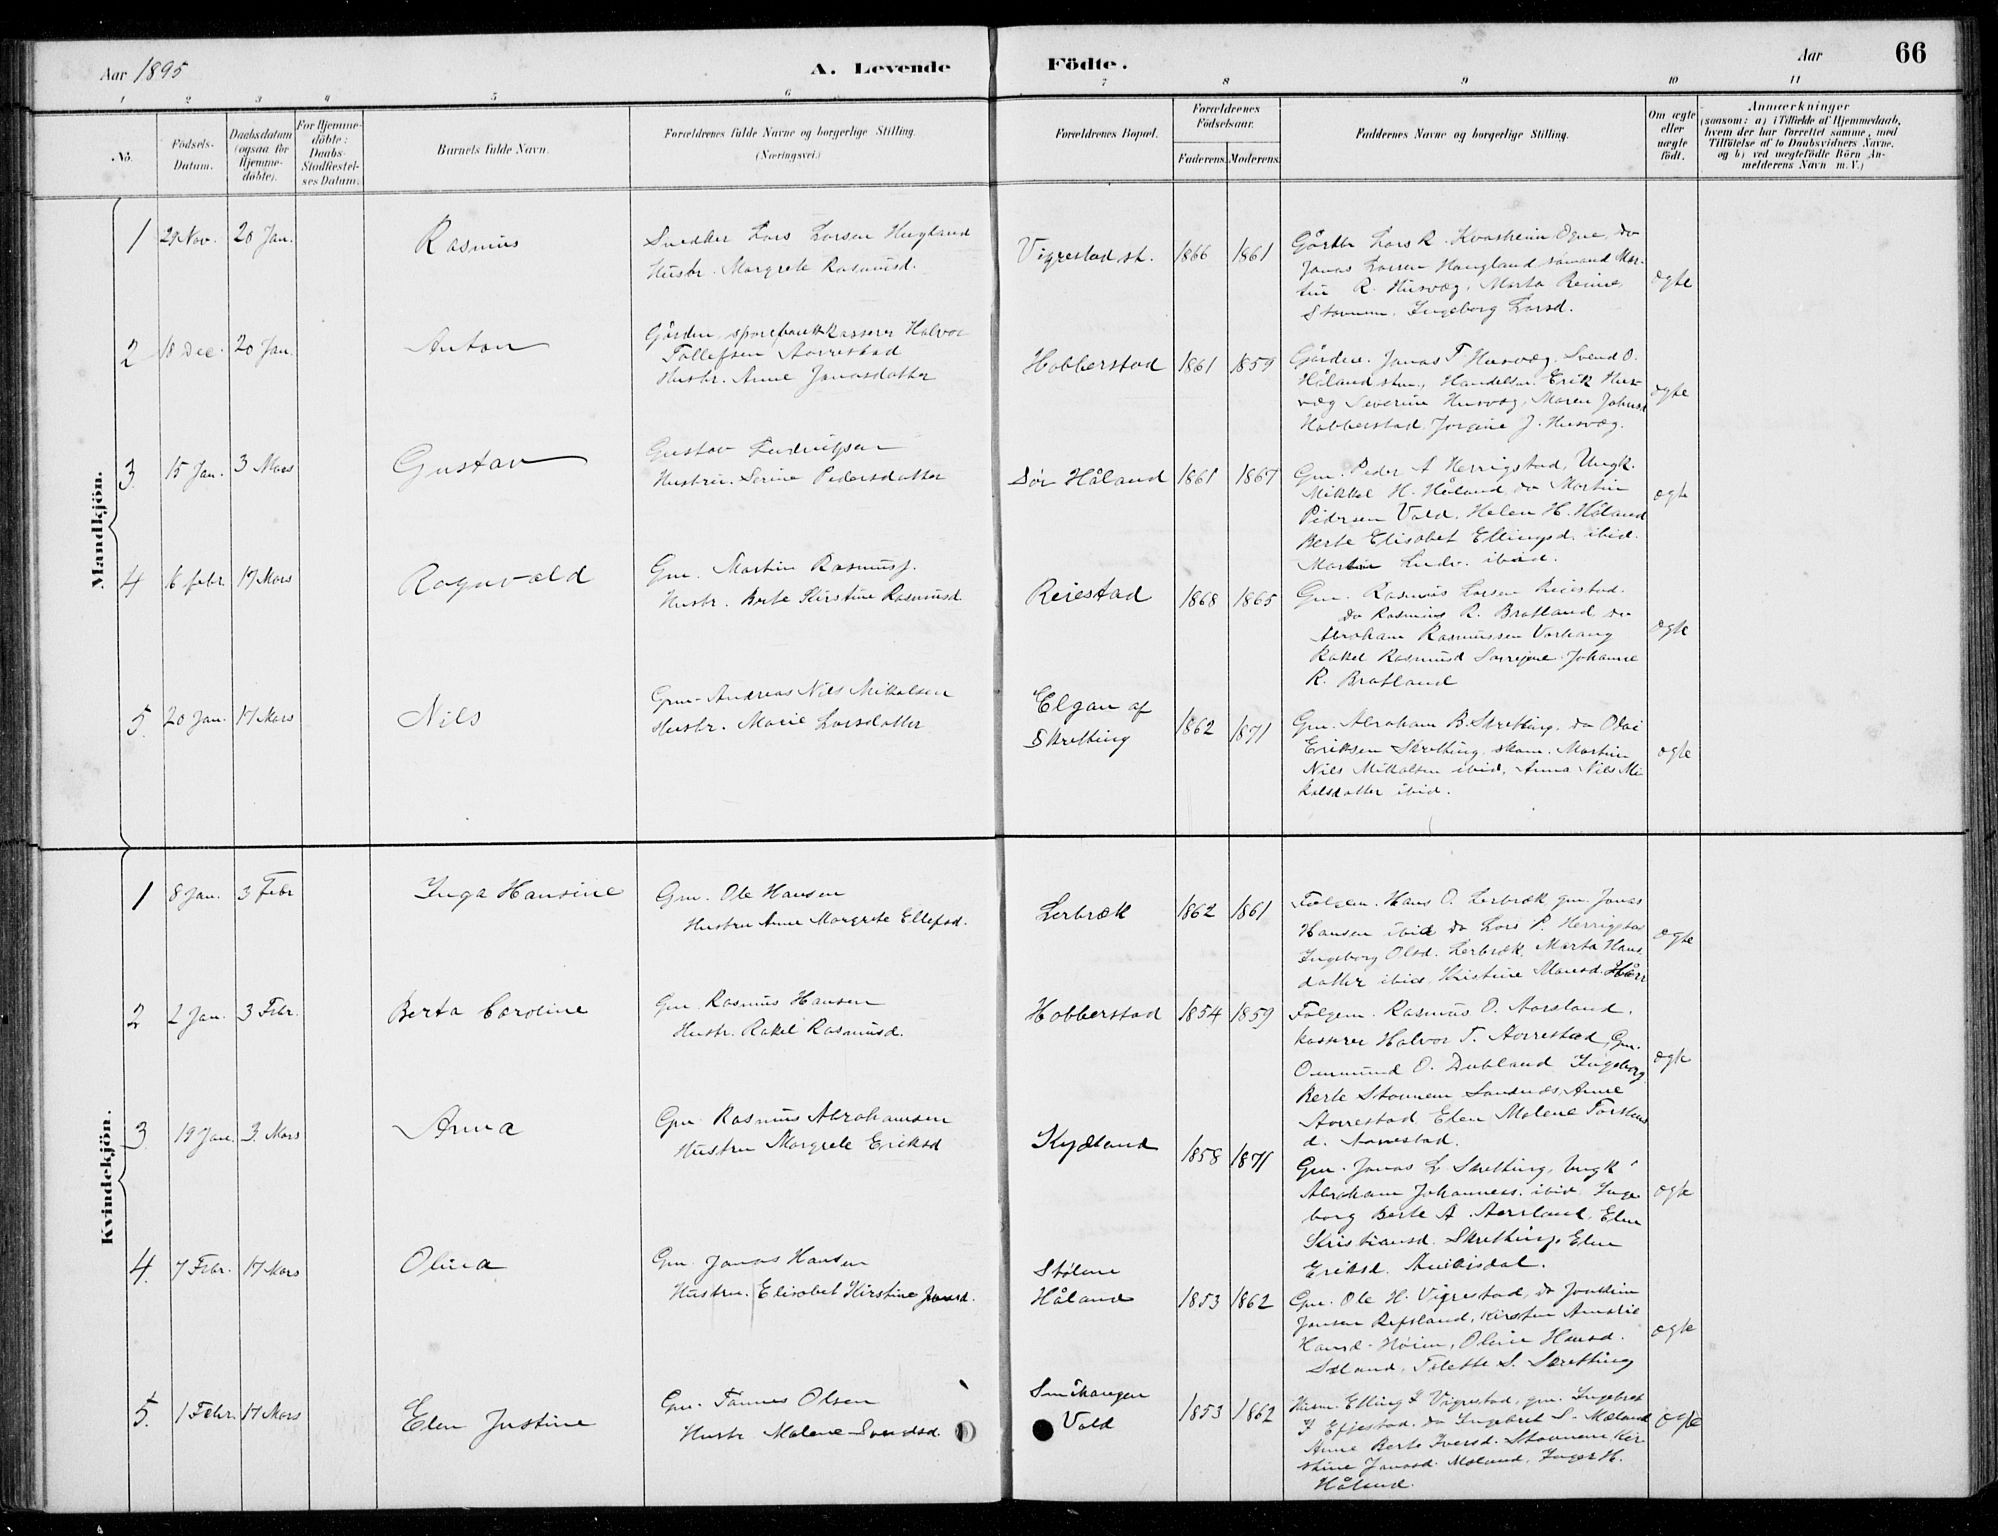 Aar 1895
A. Levende
Födte.
Aar
66
1 2 3 4 5 6 7 8 9 10 11
No.
Födsels-Datum.
Daabsdatum (ogsaa for Hjemme-döbte).
For Hjemme-döbte: Daabs-Stadfæstel-ses Datum.
Barnets fulde Navn.
Forældrenes fulde Navne og borgerlige Stilling. (Næringsvei.)
Forældrenes Bopæl.
Forældrenes Födselsaar.
Faderens. Moderens.
Faddernes Navne og borgerlige Stilling.
Om ægte eller uægte födt.
Anmærkninger (saasom: a) i Tilfælde af Hjemmedaab, hvem der har forrettet samme, med Tilföielse af to Daabsvidners Navne, og b) ved uægtefödte Börn An-melderens Navn m.V.)
Mandkjön.
1 29 Nov. 20 Jan. Rasmus
Snedker Lars Larsen Haugland
Hustr. Margrete Rasmusd.
Vigrestad st. 1866 1861
Lars R. Kvasheim Ogne, do
Jonas Larsen Haugland Mar-
tin R. Husvæg, Marta Reime,
Stavnem. Ingeborg Larsd.
ægte
2 18 Dec. 20 Jan. Anton
Gårdm. sparebankkasserer Halvor
Tollefsen Aarrestad
Hustr. Anne Jonasdatter
Hobberstad 1861 1859
Gårdm. Jonas T. Husvæg, Svend O.
Håland Handelsm. Erik Hus-
væg Severine Husvæg, Maren Johnsd
Hobberstad, Jorgine J. Husvæg.
ægte
3 15 Jan. 3 Mars Gustav
Gustav Ludvigsen
Hustru. Serine Pedersdatter
Sör Håland 1861 1867
Gm. Peder A Herrigstad, Ungk.
Mikkel H. Håland, do Martin
Pedersen Vold, Helen H. Håland
Berte Elisabet Ellingsd. ibid.
Martin Ludv. ibid.
ægte
4 6 febr. 17 Mars Ragnvald
Gm. Martin Rasmuss.
Hustr. Berte Kirstine Rasmusd.
Reiestad 1868 1865
Gm. Rasmus Larsen Reiestad.
do Rasmus R. Bratland do
Abraham Rasmussen Varhaug
Rakel Rasmusd Johanne
R. Bratland
ægte
5. 20 Jan. 17 Mars Nils
Gm. Andreas Nils Mikalsen
Hustr. Marie Larsdatter
Elgan af
Skretting
1862 1871
Gm. Abraham B. Skretting, do Olai
Eriksen Skretting, Martin
Nils Mikalsen ibid, Anna Nils Mi
kalsdatter ibid.
ægte
Kvindekjön.
1 8 Jan. 3 Febr Inga Hansine
Gm. Ole Hansen
Hustru Anne Margrete Ellefsd.
Lerbræk 1862 1861
Hans O. Lerbræk gm. Jonas
Hansen ibid do Lars P. Herrigstad
Ingeborg Olsd. Lerbræk, Marta Hans
datter ibid, Kristine Monsd.
ægte
2 2 Jan. 3 Febr. Berta Caroline
Gm. Rasmus Hansen
Hustr. Rakel Rasmusd.
Hobberstad 1854 1859
Rasmus O. Aarsland.
kasserer Halvor T. Aarrestad, Gm.
Ommund O. Dubland Ingeborg
Berte Stavnem Anne
Aarrestad Elen Malene
d. Aarrestad.
ægte
3 19 Jan. 3 Mars Anna
Gm. Rasmus Abrahamsen
Hustru Margrete Eriksd
Kydland 1858 1871
Gm. Jonas L. Skretting, Ungk
Abraham Johannes. ibid. Inge
borg Berte A. Aarsland, Elen
Kristiansd. Skretting, Elen
Eriksd.
ægte
4. 7 Febr. 17 Mars Olina
Gm. Jonas Hansen
Hustru. Elisabet Kirstine Jonasd.
Stölene
Håland 1853 1862
Gm. Ole H. Vigrestad, do
Jansen Refsland, Kirsten Amalie
Hansd. Höien, Oline Hansd.
Tolette S. Skretting
ægte
5. 1 Febr. 17 Mars Elen Justine
Gm. Tönnes Olsen
Hustr Malene Svendsd.
Vold 1853 1862
Husm. Elling I Vigrestad, gm. Ingebret
I Efjestad. do Ingebret S. Mæland
Anne Berte Iversd. Stavnem, Kir-
stine Jonasd. Mæland, Inger H.
Håland.
ægte